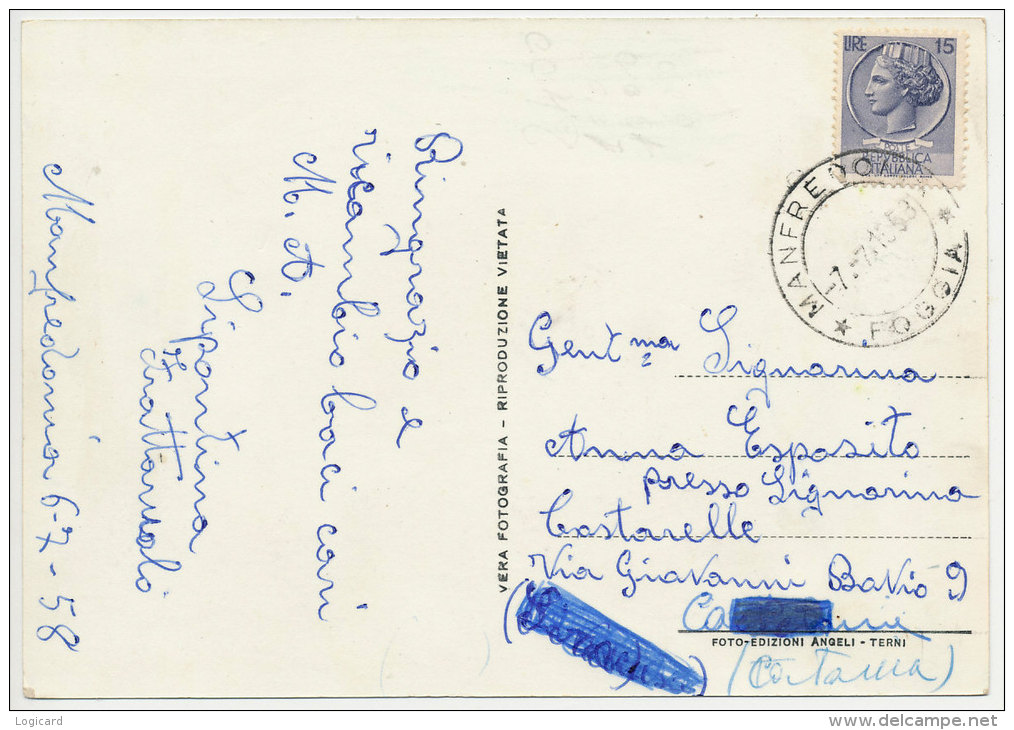 Manfredonia 6-7-58
Ringrazio e
ricambio baci cari
M. A.
Sipontina
Frattaruolo
VERA FOTOGRAFIA - RIPRODUZIONE VIETATA
LIRE 15
POSTE
REPVBBLICA
ITALIANA
MANFREDONIA
FOGGIA
Gent ma Signorina
Anna Esposito
presso Signorina
Castarelle
Via Giovanni 9
FOTO-EDIZIONI ANGELI - TERNI
(Catania)
Logicard
www.delcampe.net